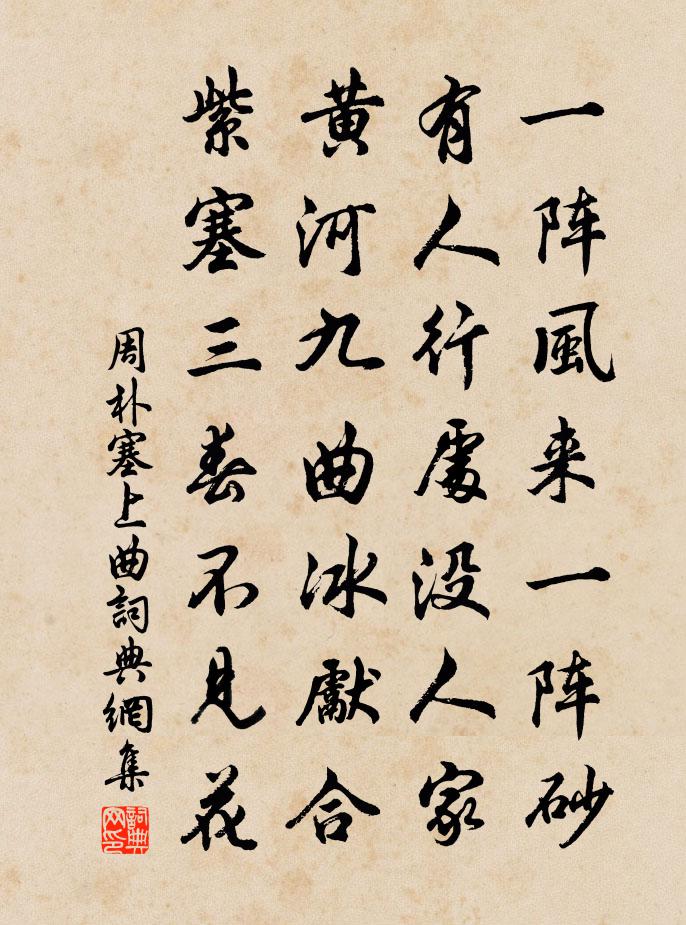 一阵風来一阵砂
有人行處没人家
黄河九曲冰獻合
紫塞三春不見花
周朴塞上曲詞典網集
詞典网印